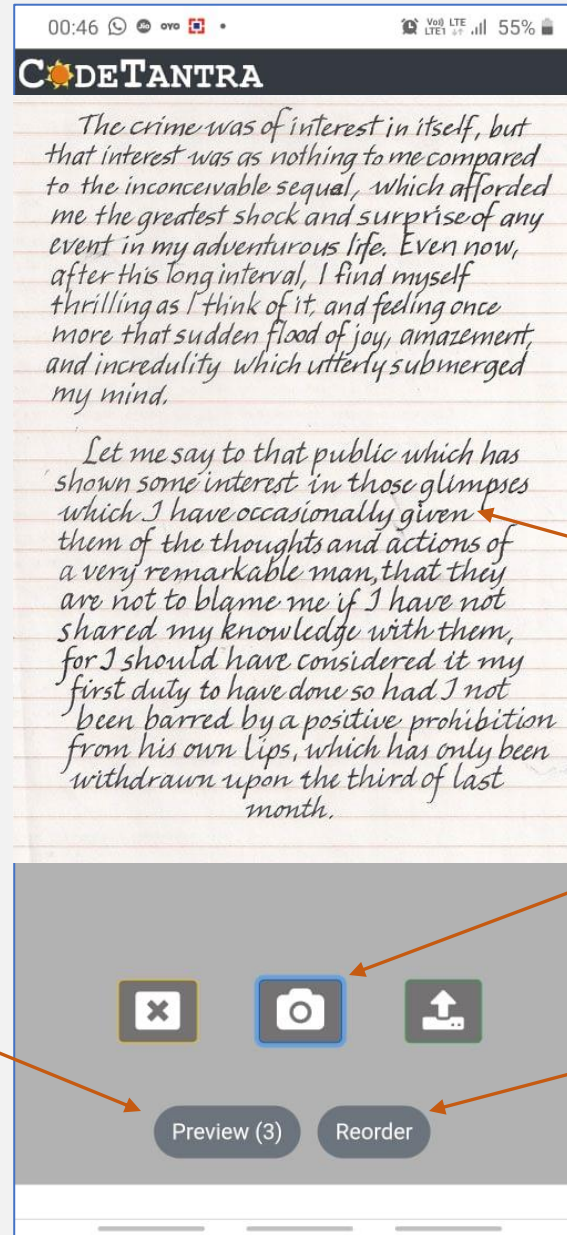 00:46
oyo
Voi) LTE
LTE1 55%
CODETANTRA
The crime was of interest in itself, but
that interest was as nothing to me compared
to the inconceivable sequel, which afforded
me the greatest shock and surprise of any
event in my adventurous life. Even now,
after this long interval, I find myself
thrilling as I think of it, and feeling once
more that sudden flood of joy, amazement,
and incredulity which utterly submerged
my mind.
Let me say to that public which has
shown some interest in those glimpses
which I have occasionally given
them of the thoughts and actions of
a very remarkable man, that they
are not to blame me if I have not
shared my knowledge with them,
for I should have considered it my
first duty to have done so had I not
been barred by a positive prohibition
from his own lips, which has only been
withdrawn upon the third of last
month.
Preview (3) Reorder